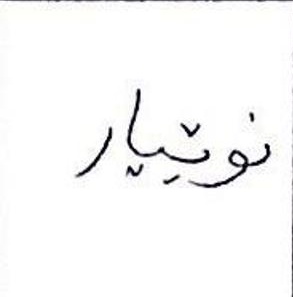 نوێیار